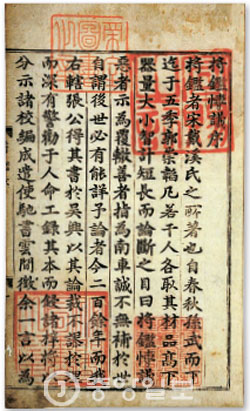 將鑑愽議序
將鑑者宋戴溪氏之所著也自春秋孫武而下
迄于五季郭崇韜凡若干人各取其材品高下
器量大小智計短長而論斷之目曰將鑑愽議
惡者示為覆轍善者指為南車誠不無補於世
自謂後世必有能詳予論者今二百餘年而我
右轄張公得其書於吳興以其論裁不謬於
而深有警勸于人命工錄其本而鋟諸梓將
分示諸校編成遣使馳書雲間徵余一言以為
중앙일보